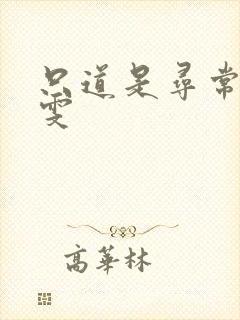 只道是尋常
雯
高華林